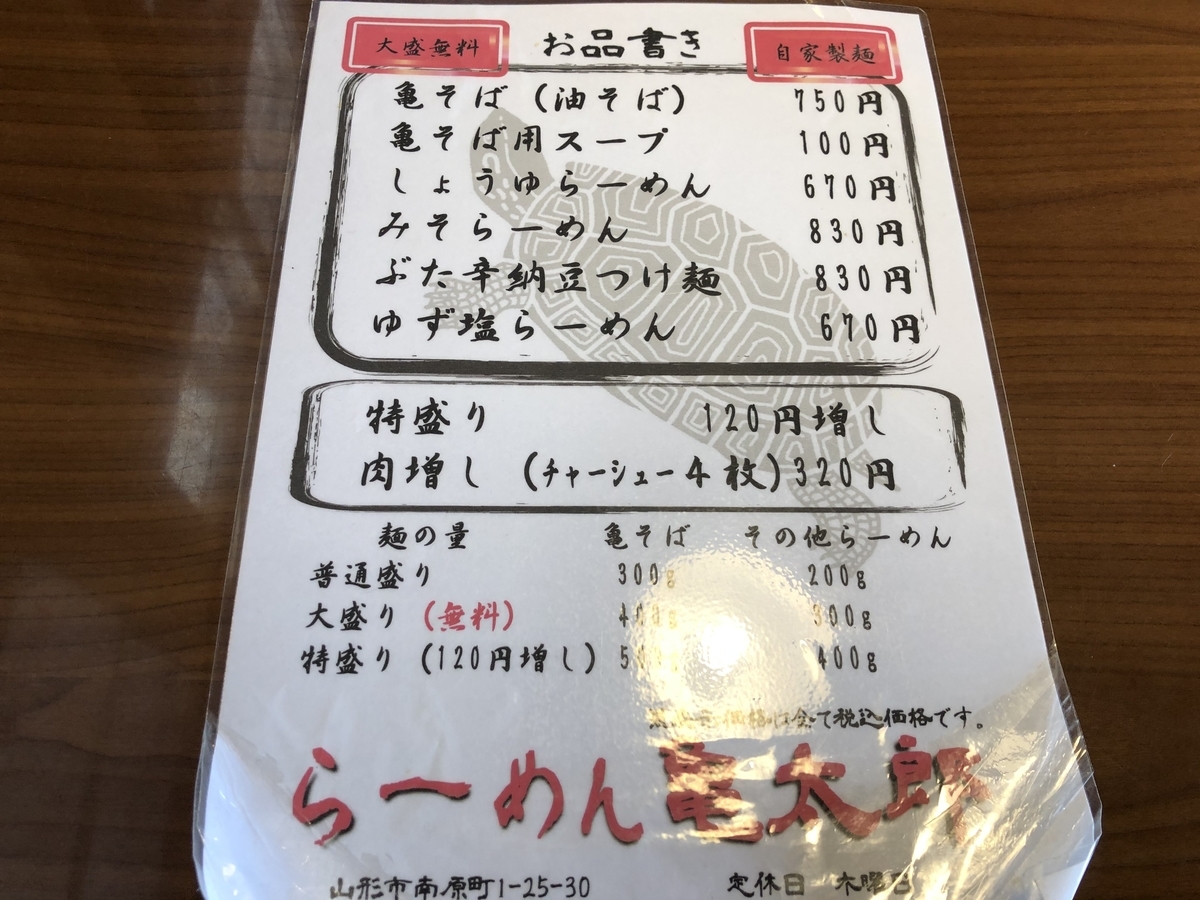 大盛無料 お品書き 自家製麺
亀そば (油そば) 750円
亀そば用スープ 100円
しょうゆらーめん 670円
みそらーめん 830円
ぶた辛納豆つけ麺 830円
ゆず塩らーめん 670円
特盛り 120円増し
肉増し (チャーシュー4枚) 320円
麺の量 亀そば その他らーめん
普通盛り 300g 200g
大盛り (無料) 400g 300g
特盛り (120円増し) 400g
価格は全て税込価格です。
らーめん 亀太郎
山形市南原町1-25-30 定休日 木曜日